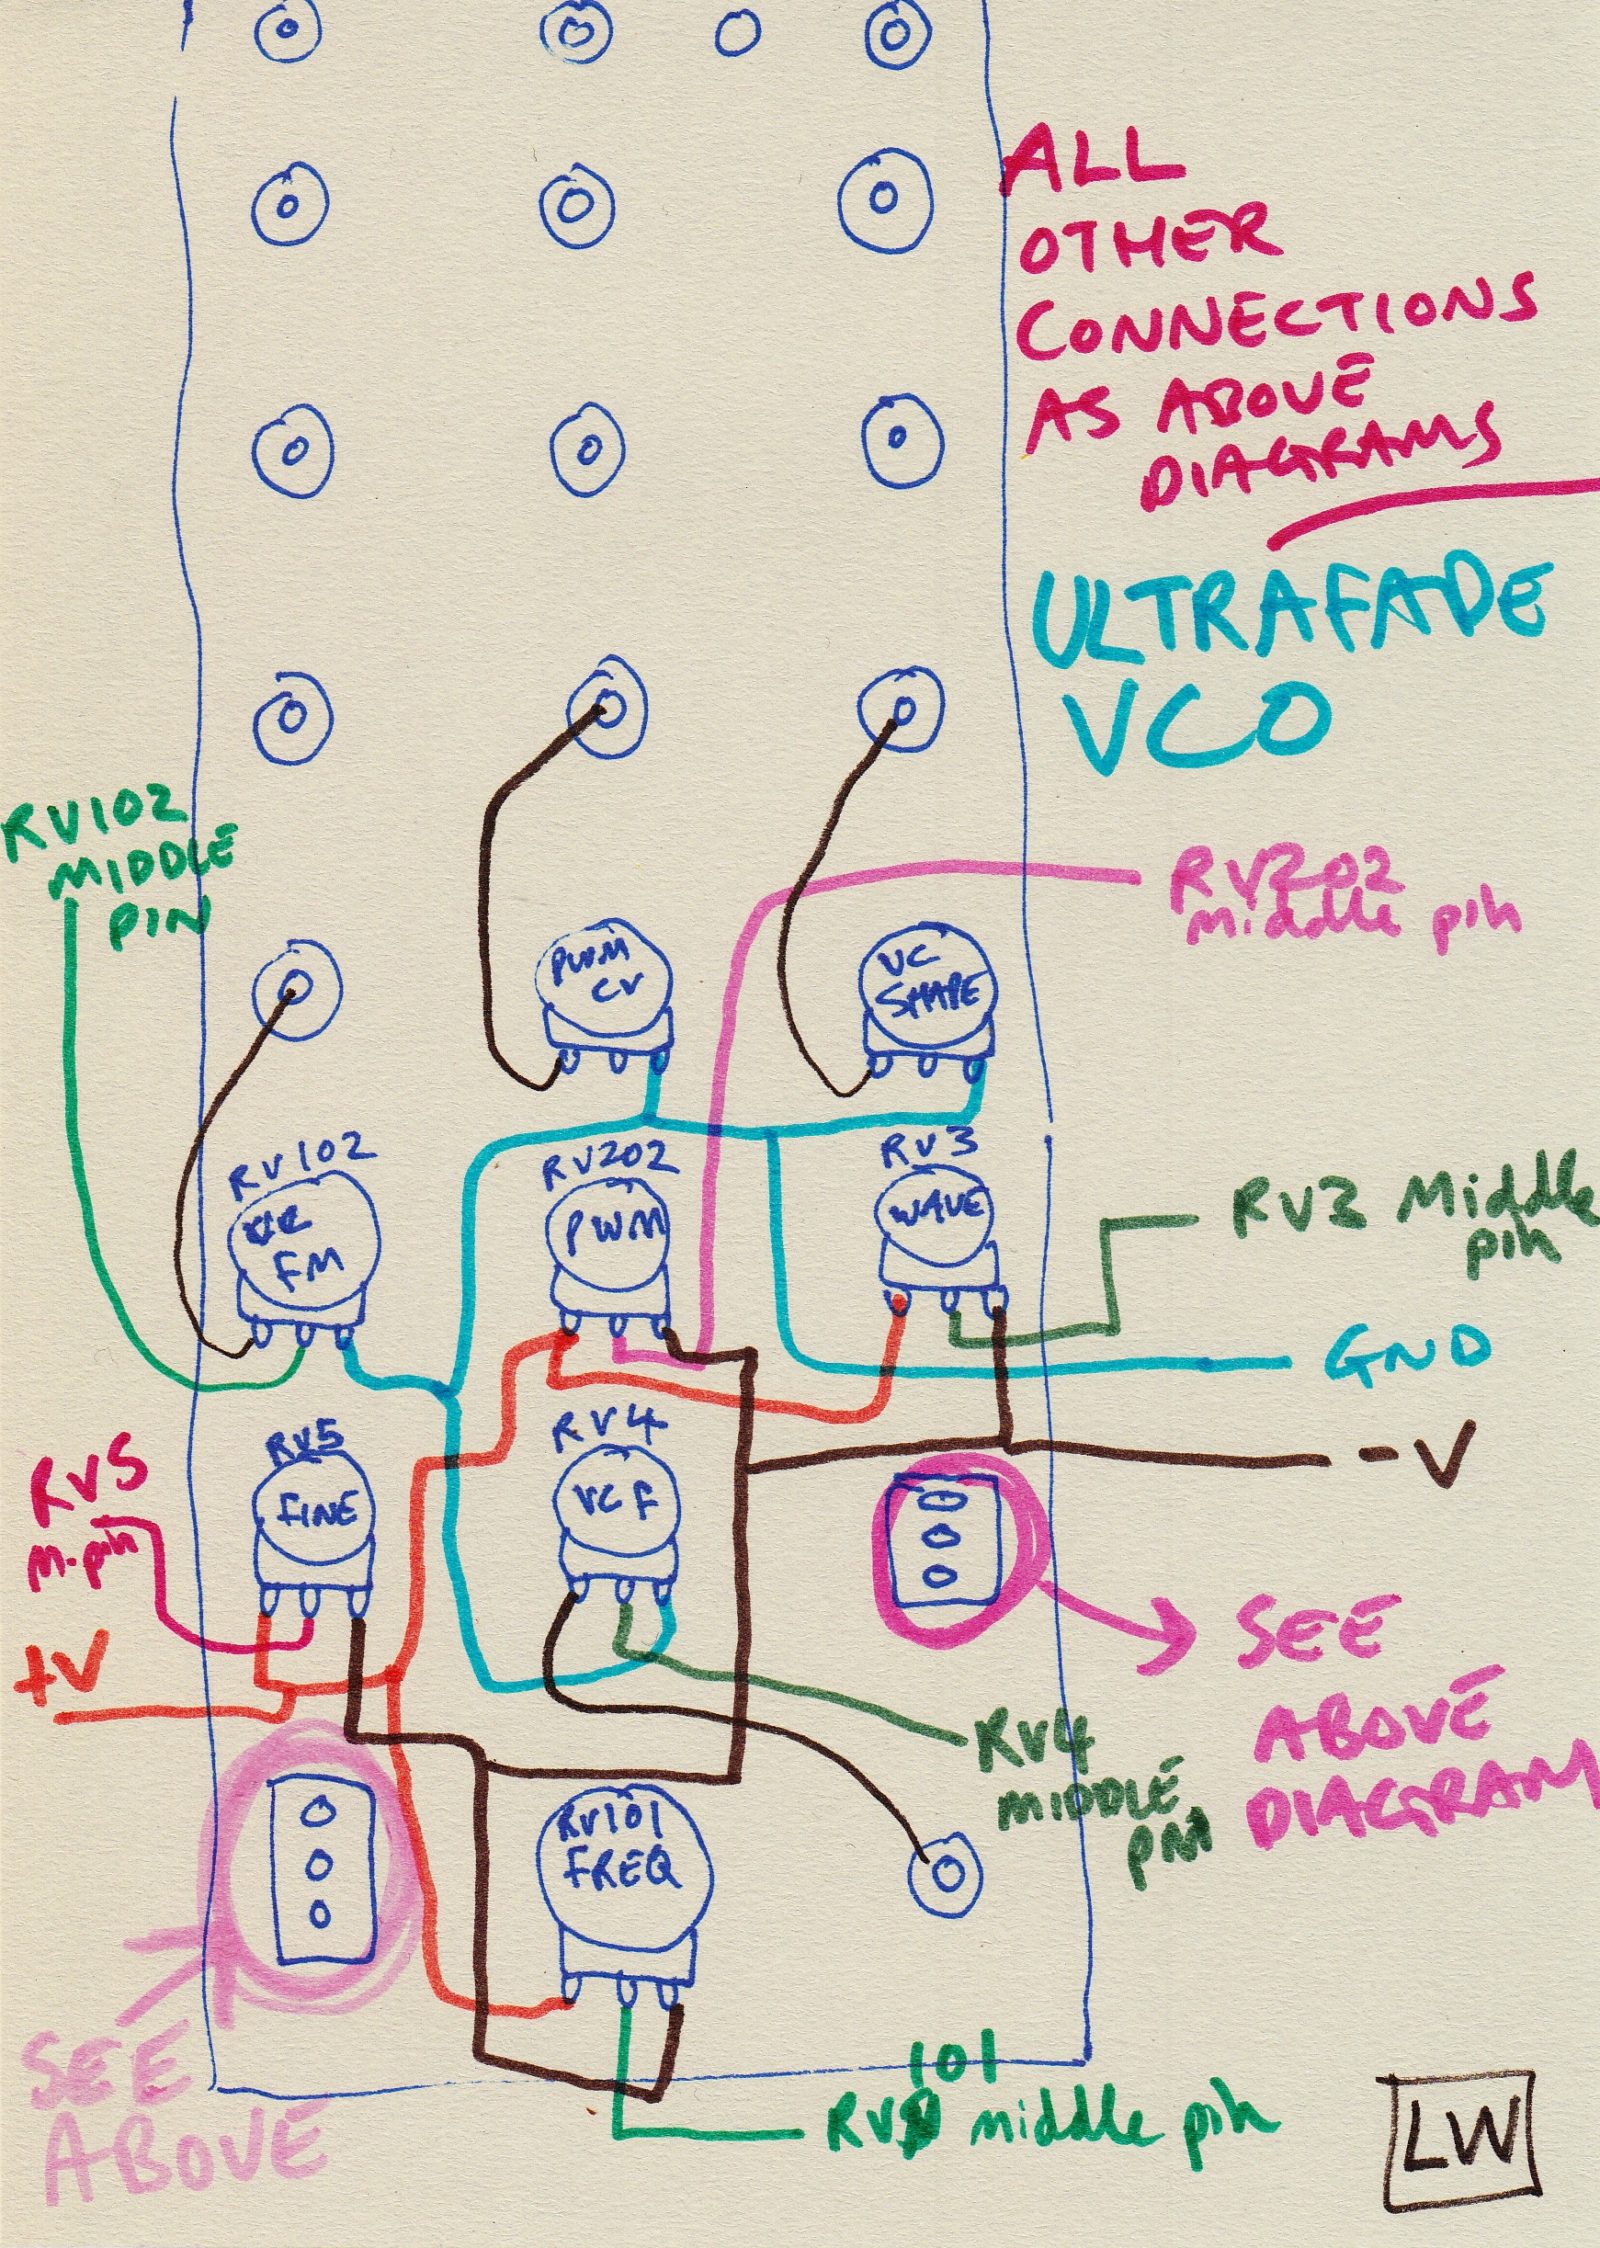 ALL
OTHER
CONNECTIONS
AS ABOVE
DIAGRAMS
ULTRAFADE
VCO
RV102
MIDDLE
PIN
RV202
middle pin
PWM
CV
VC
SHAPE
RV102
FM
RV202
PWM
RV3
WAVE
RV3 Middle
pin
GND
-V
RV5
M.pin
+V
RV5
FINE
RV4
VCF
SEE
ABOVE
DIAGRAM
RV4
MIDDLE
PIN
RV101
FREQ
SEE
ABOVE
101
RV middle pin
LW